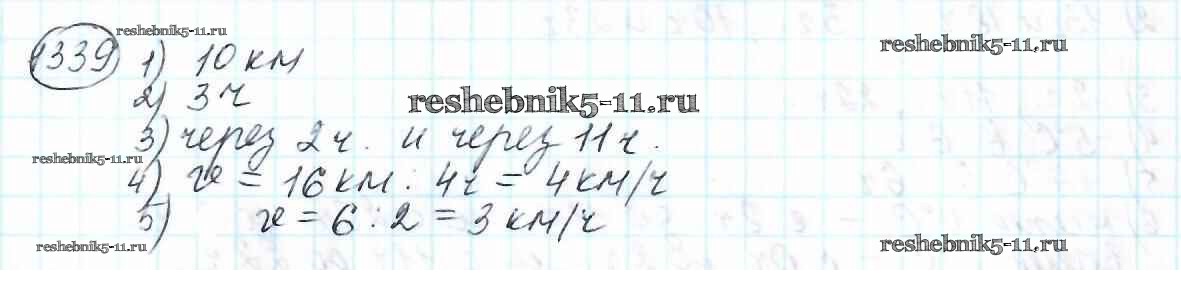 reshebnik5-11.ru
1339 1) 10 км
reshebnik5-11.ru
2) 3 ч
reshebnik5-11.ru
3) через 2 ч. и через 11 ч.
reshebnik5-11.ru
4) v = 16 км : 4ч = 4 км/ч
5) v = 6 : 2 = 3 км/ч
reshebnik5-11.ru
reshebnik5-11.ru